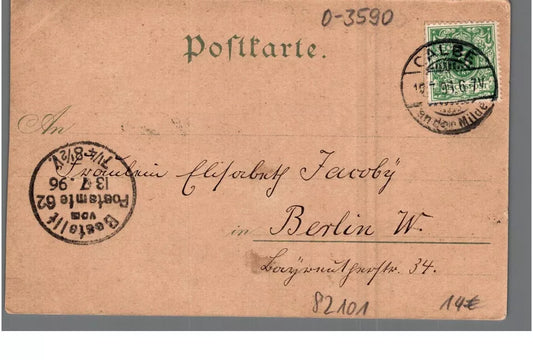 0-3590
Postkarte.
CALBE
6-7V.
an der Milde
An
Fräulein Elisabeth Jacoby
in Berlin W.
Bayreutherstr. 34.
Bestellt
vom
Postamte 62
13.7.96
7¼-8½V.
82101
14€